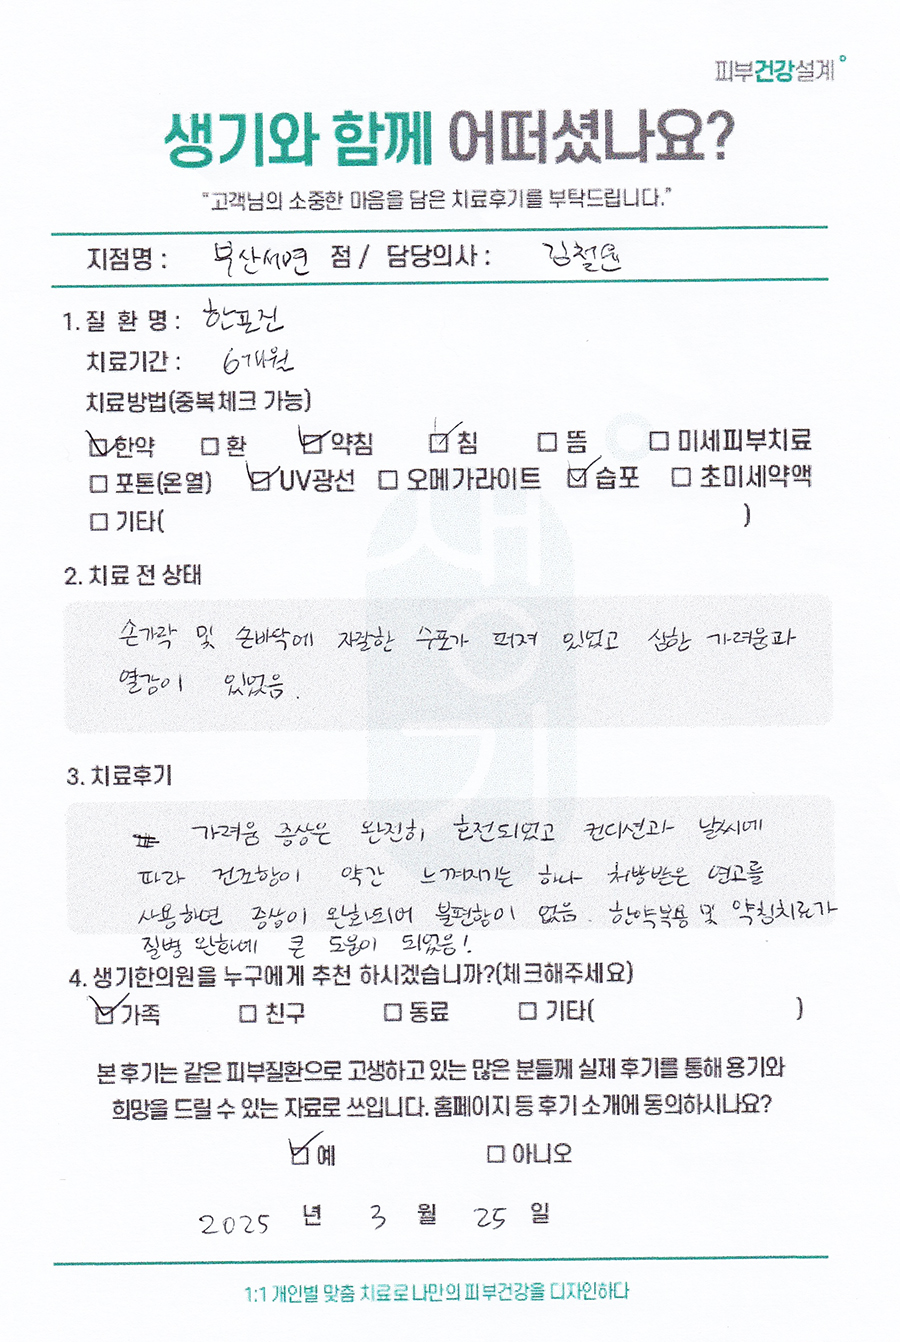 피부건강설계
생기와 함께 어떠셨나요?
"고객님의 소중한 마음을 담은 치료후기를 부탁드립니다."
지점명 : 부산서면 점 / 담당의사 : 김철윤
1. 질 환 명 : 한포진
치료기간 : 6개월
치료방법(중복체크 가능)
☑ 한약 ☐ 환 ☑ 약침 ☑ 침 ☐ 뜸 ☐ 미세피부치료
☐ 포톤(온열) ☑ UV광선 ☐ 오메가라이트 ☑ 습포 ☐ 초미세약액
☐ 기타( )
2. 치료 전 상태
손가락 및 손바닥에 자잘한 수포가 퍼져 있었고 심한 가려움과
열감이 있었음.
3. 치료후기
가려움 증상은 완전히 호전되었고 컨디션과 날씨에
따라 건조함이 약간 느껴지기는 하나 처방받은 연고를
사용하면 증상이 완화되어 불편함이 없음. 한약복용 및 약침치료가
질병 완화에 큰 도움이 되었음!
4. 생기한의원을 누구에게 추천 하시겠습니까?(체크해주세요)
☑ 가족 ☐ 친구 ☐ 동료 ☐ 기타( )
본 후기는 같은 피부질환으로 고생하고 있는 많은 분들께 실제 후기를 통해 용기와
희망을 드릴 수 있는 자료로 쓰입니다. 홈페이지 등 후기 소개에 동의하시나요?
☑ 예 ☐ 아니오
2025 년 3 월 25 일
1:1 개인별 맞춤 치료로 나만의 피부건강을 디자인하다
생기